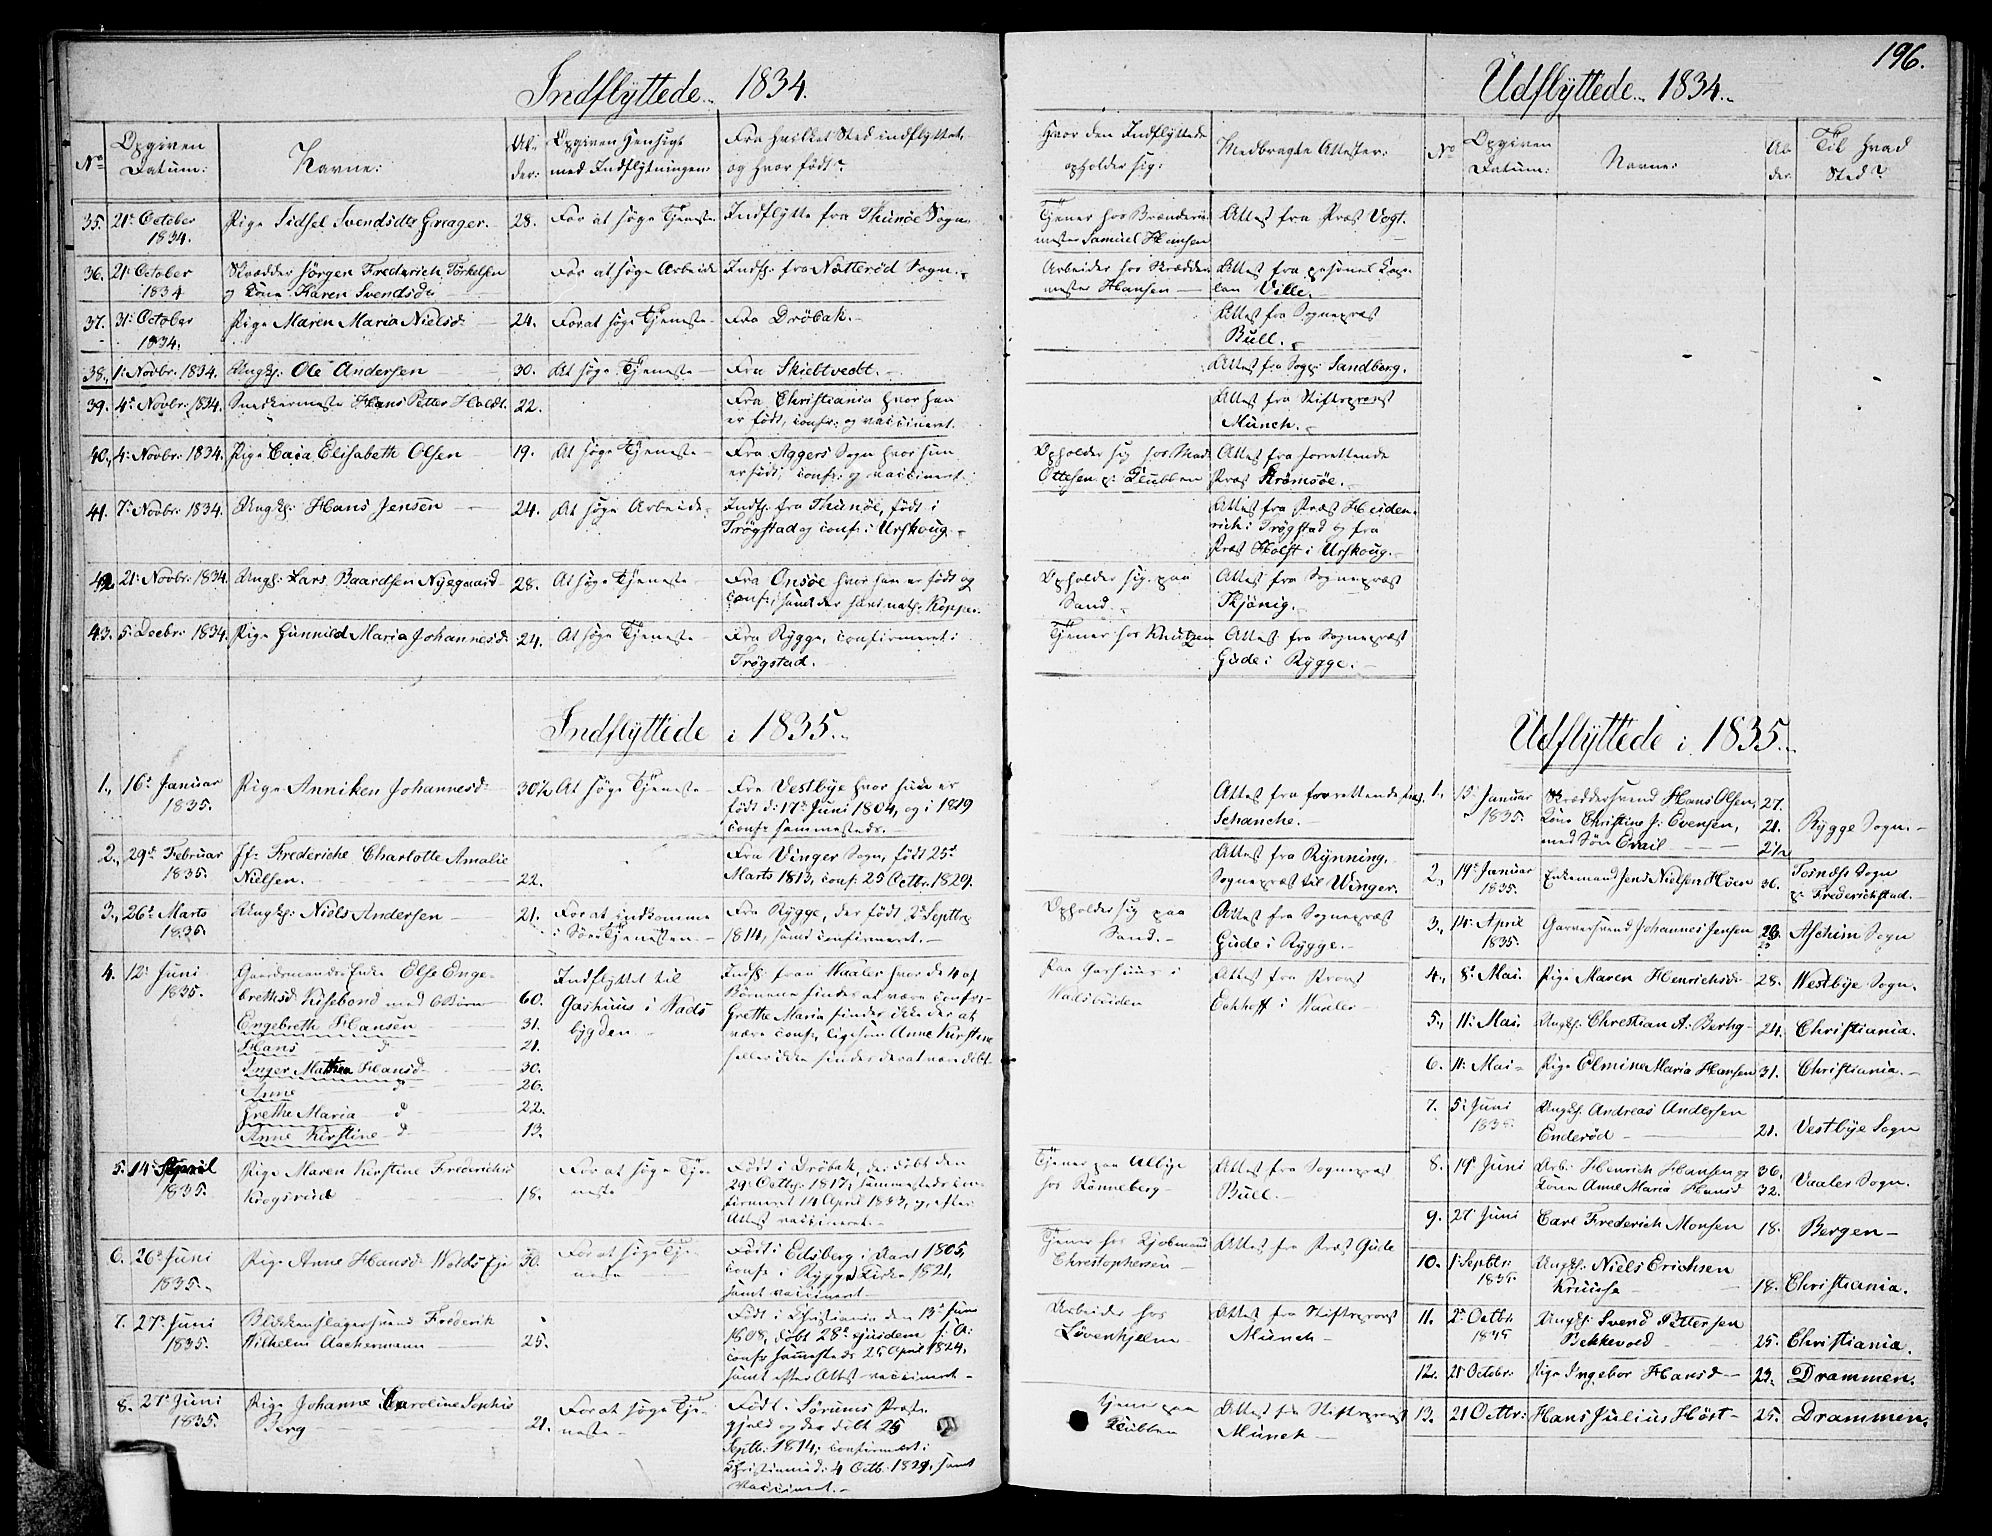 196.
Indflyttede 1834.
No
Opgiven Datum:
Navne:
Alder:
Opgiven Hensigt med Indflytningen:
Fra hvilket Sted indflyttet, og hvor født?
Hvor den Indflyttede opholder sig:
Medbragte Attester:
35. 21: October 1834. Pige Sidsel Svendsdtr Graager. 28. For at søge Tjeneste Indflytte fra Thunøe Sogn. Tjener hos Brænderiemester Samuel Hansen Attest fra Præst Vogt.
36. 21: October 1834 Skrædder Jørgen Frederich Torkelsen og Kone Karen Svendsd: For at søge Arbeide Indfl: fra Nøtterød Sogn. Arbeider hos Skræddermester Hansen Attest fra personel Capellan Wille.
37. 31: October 1834. Pige Maren Maria Nielsd: 24. For at søge Tjeneste Fra Drøbak. Attest fra Sognepræst Bull.
38. 1: Novbr: 1834. Ungk: Ole Andersen 30. At søge Tjeneste Fra Skiebtvedt. Attest fra Sogp: Sandberg.
39. 4: Novbr: 1834. Snedkermester Hans Petter Holdt. 22. Fra Christiania hvor han er født, conf: og vaccineret. Attest fra Stiftsprovst Münch.
40. 4: Novbr: 1834. Pige Caia Elisabeth Olsen 19. At søge Tjeneste Fra Aggers Sogn hvor hun er født, conf: og vaccineret. Opholder sig hos Mad: Ottesen p: Klubben Attest fra forrettende Præst Strömsöe.
41. 7: Novbr: 1834. Ungk: Hans Jensen 24. At søge Arbeide. Indfl: fra Thunöe, født i Trøgstad og conf: i Urskoug. Attest fra Præst Heidenrich i Trøgstad og fra Præst Holst i Urskoug.
42. 21: Novbr: 1834. Ungk: Lars Baardsen Nyegaard 28. At søge Tjeneste Fra Onsöe hvor han er født og conf:, samt der hava nat: Kopper. Opholder sig paa Sand. Attest fra Sognepræst Skjönig.
43. 5: Decbr: 1834. Pige Gunnild Maria Johannesd: 24. At søge Tjeneste Fra Rygge, confirmeret i Trøgstad. Tjener hos Knutzen Attest fra Sognepræst Gude i Rygge.
Indflyttede i 1835.
1. 16: Januar 1835. Pige Anniken Johannesd: 30½ At søge Tjeneste Fra Vestbye hvor hun er født d: 17de Juni 1804, og i 1819 conf: sammesteds. Attest fra forrettende Præst Schanche.
2. 29: Februar 1835. Jf: Frederiche Charlotte Amalie Nielsen. 22. Fra Vinger Sogn, født 25: Marts 1813, conf: 25 Octbr: 1829. Attest fra Rynning, Sognepræst til Winger.
3. 26: Marts 1835. Ungk: Niels Andersen 21. For at indkomme i Søe Tjenesten. Fra Rygge, der født 2: Septbr: 1814, samt confirmeret. Opholder sig paa Sand. Attest fra Sognepræst Gude i Rygge.
4. 12: Juni 1835. Gaardmands Enke Else Engebrethsd: Kisebond med 6 Børn 60. Indflyttet til Gashuus i Vadsbygden Indfl: fra Waaler hvor de 4 af Børnene findes at være conf:, Grethe Maria findes ikke der at være conf:, ligesom Anne Kirstine heller ikke findes der at være døbt. Paa Gashuus i Attest fra Provst Eckhoff i Waaler
Engebreth Hansen 31.
Hans d 21.
Inger Mathea Hansd: 30.
Anne d 26.
Grethe Maria d 22.
Anne Kirstine d 13.
5. 14: April 1835. Pige Maren Kirstine Frederichsd: Krogsrud 18. For at søge Tjeneste Født i Drøbak, der døbt den 29: Octbr: 1817, sammesteds confirmeret 14 April 1833, og efter Attest vaccineret. Tjener paa Albye hos Rönneberg Attest fra Sognepræst Bull.
6. 26: Juni 1835. Pige Anne Hansd: Wolds Eje 30. For at søge Tjeneste Født i Edsberg i Aaret 1805, conf: i Rygge Kirke 1821, samt vaccineret. Tjener hos Kjøbmand Christophersen Attest fra Præst Gude
7. 27: Juni 1835. Blikkenslagersvend Frederik Wilhelm Aachermann 25. Født i Christiania den 13: Juni 1808, døbt 28: ejusdem f: A: conf: sammesteds 25 April 1824, samt efter Attest vaccineret. Arbeider hos Lövenhjelm Attest fra Stiftsprovst Münch
8. 27: Juni 1835. Pige Johanne Caroline Sophie Berg 21. For at søge Tjeneste Født i Sørums Præstegjeld og der døbt 25 Septb: 1814, confirmeret i Christiania d: 4 Octb: 1829, samt vaccineret. Tjener paa Klubben Attest fra Stiftsprovst Münch
Udflyttede 1834.
No
Opgiven Datum:
Navne:
Alder.
Til hvad Sted?
Udflyttede i 1835.
1. 15: Januar 1835. Skræddersvend Hans Olsen, 27. Kone Christine J: Evensen, 21. med Søn Emil 2½ Rygge Sogn.
2. 19: Januar 1835. Enkemand Jens Nielsen Höen 36. Tosnæs Sogn p: Frederichstad.
3. 14: April 1835. Garversvend Johannes Jensen 23. Aschim Sogn
4. 8: Mai. Pige Maren Henrichsd: 28. Westbye Sogn.
5. 11: Mai. Ungk: Chrestian A: Berhg 24. Christiania.
6. 11: Mai Pige Elmine Maria Hansen 31. Christiania.
7. 5: Juni 1835. Ungk: Andreas Andersen Enderöd 21. Vestbye Sogn
8. 19: Juni Arb: Henrich Hansen og 36. Kone Anne Maria Hansd 32. Vaaler Sogn.
9. 27 Juni Carl Frederich Monsen 18. Bergen
10. 1: Septbr: 1835 Ungk: Niels Erichsen Knudse 18. Christiania.
11. 2: Octbr: 1835 Ungk: Svend Pettersen Bekkevold 25. Christiania.
12. 21 Octobr: Pige Ingebor Hansd 23. Drammen.
13. 21 Octbr: Hans Julius Höst 25. Drammen.